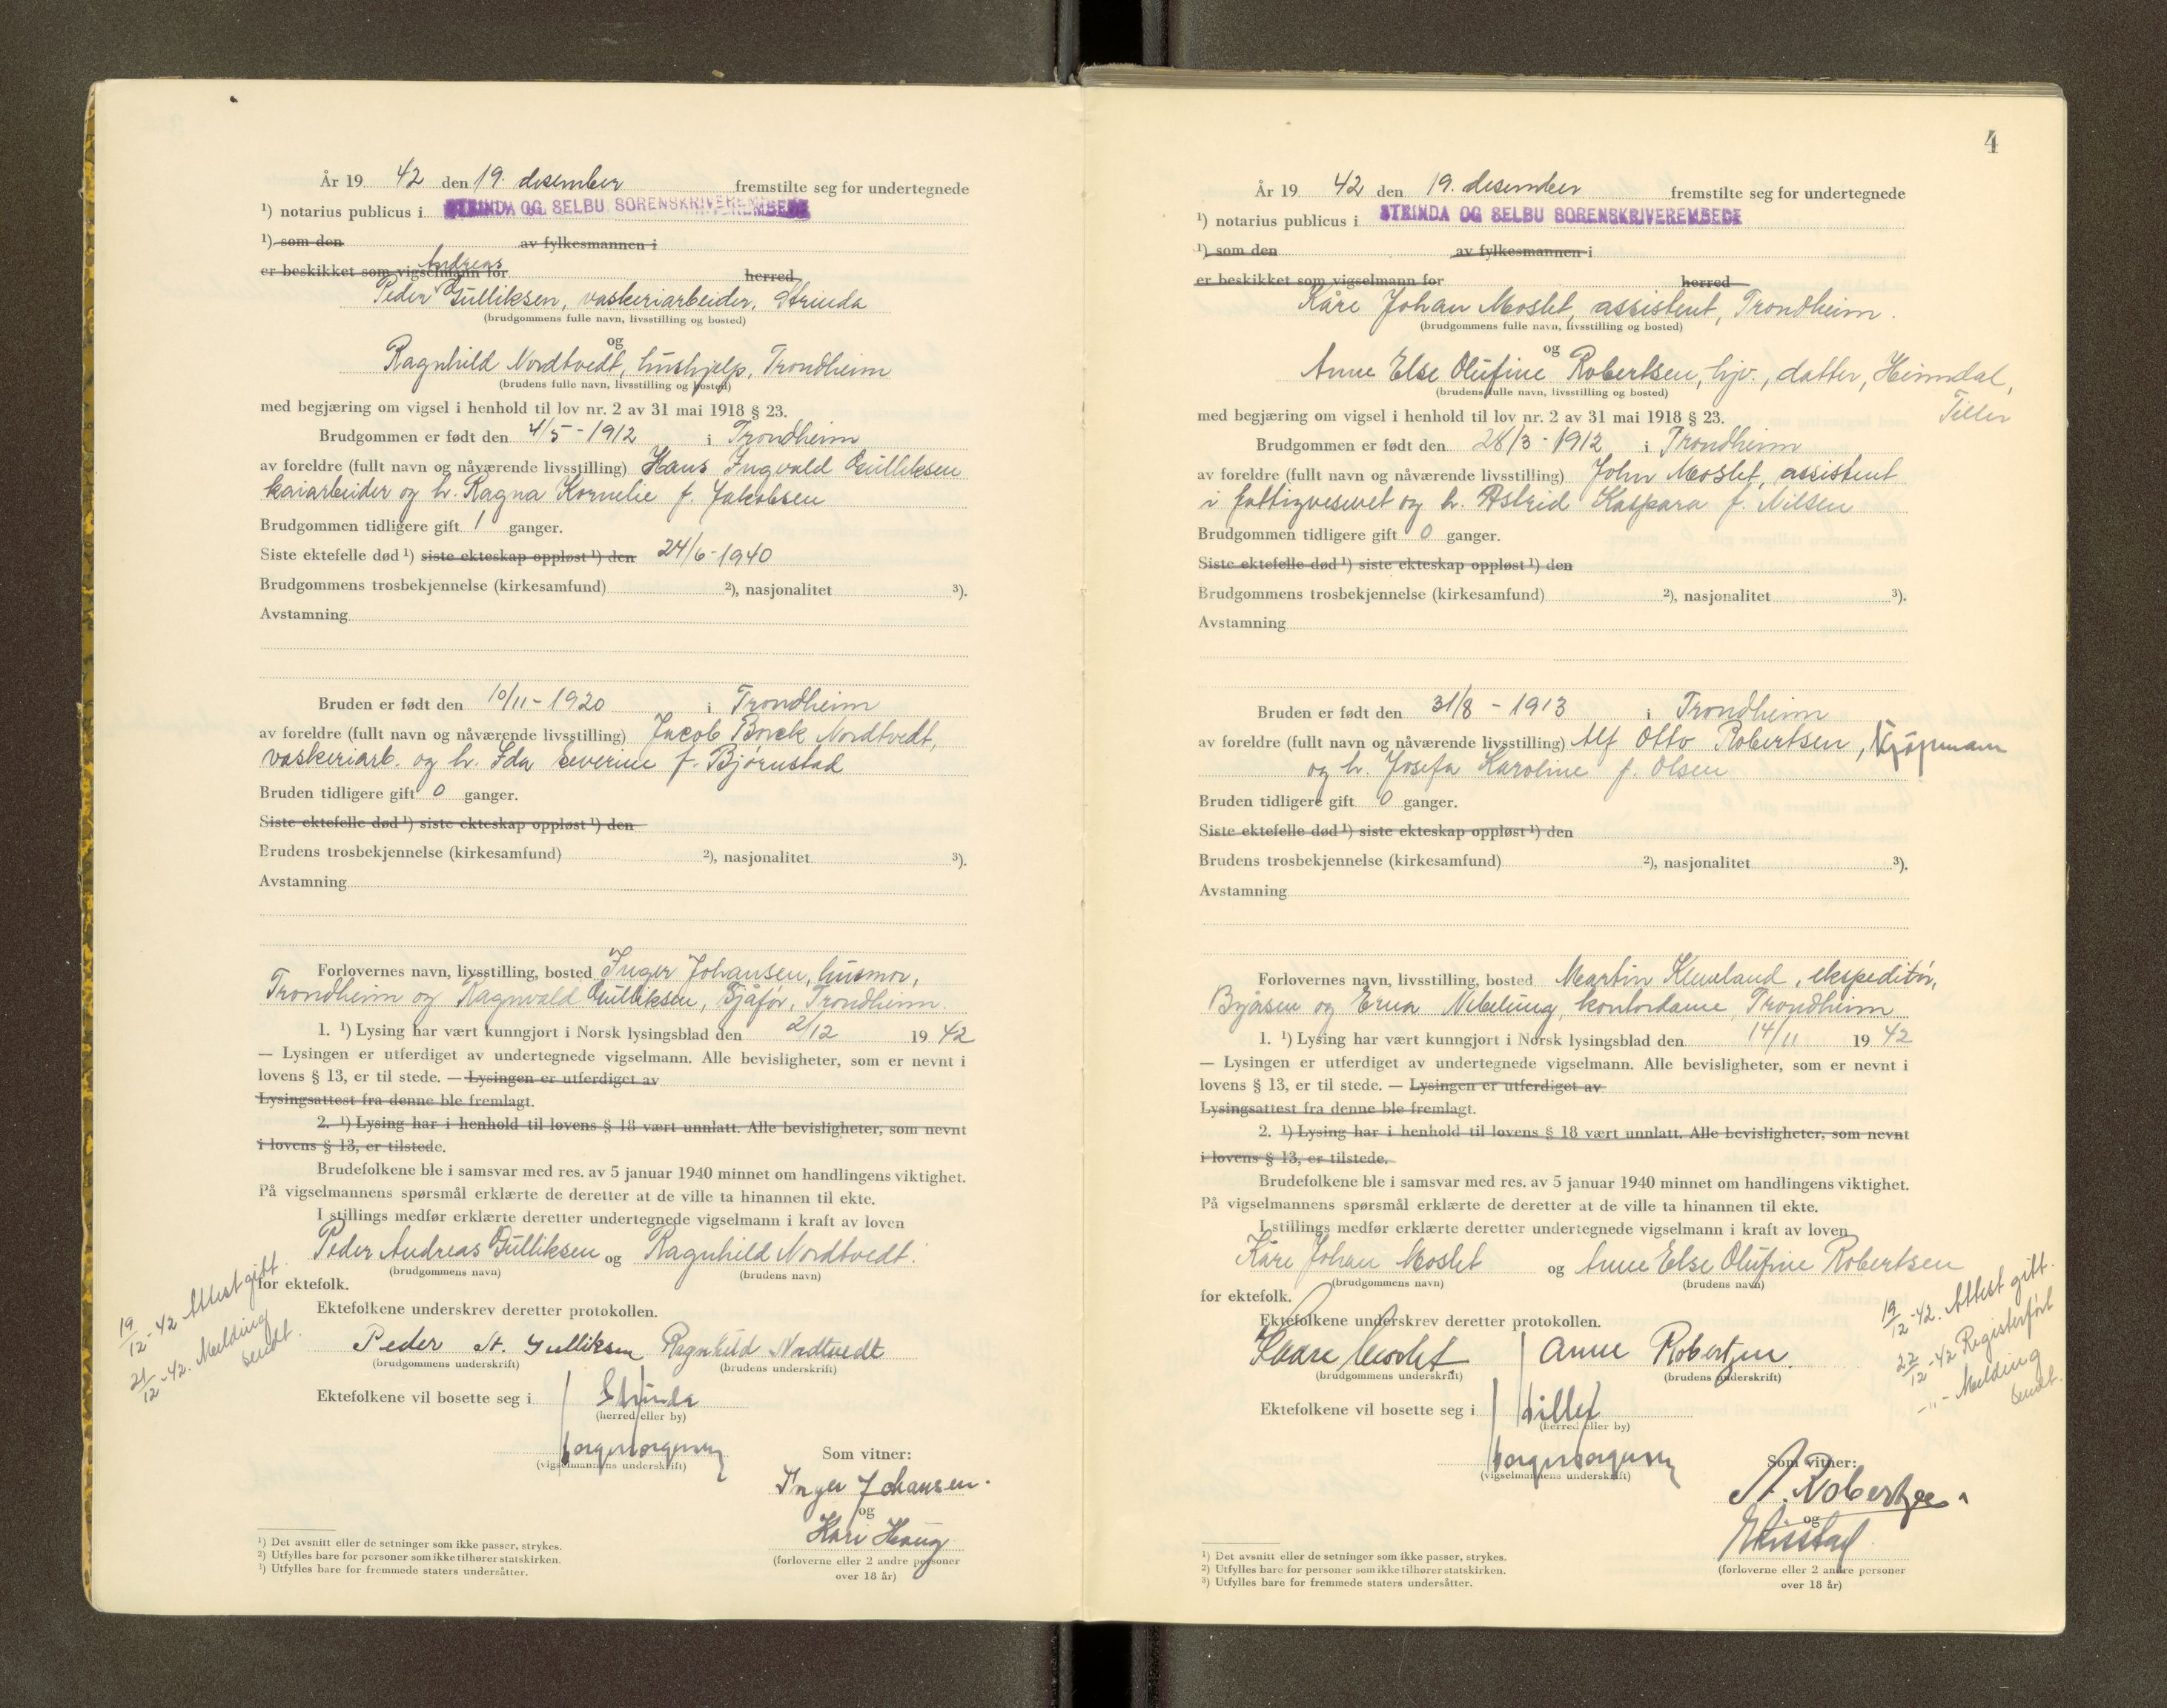 År 19 42 den 19. desember fremstilte seg for undertegnede
¹) notarius publicus i STRINDA OG SELBU SORENSKRIVEREMBEDE
¹) som den av fylkesmannen i
er beskikket som vigselmann for herred
Andreas
Peder Gulliksen, vaskeriarbeider, Strinda
(brudgommens fulle navn, livsstilling og bosted)
og
Ragnhild Nordtvedt, hushjelp, Trondheim
(brudens fulle navn, livsstilling og bosted)
med begjæring om vigsel i henhold til lov nr. 2 av 31 mai 1918 § 23.
Brudgommen er født den 4/5 - 1912 i Trondheim
av foreldre (fullt navn og nåværende livsstilling) Hans Ingvald Gulliksen
kaiarbeider og h. Ragna Kornelie f. Jakobsen
Brudgommen tidligere gift 1 ganger.
Siste ektefelle død ¹) siste ekteskap oppløst ¹) den 24/6 - 1940
Brudgommens trosbekjennelse (kirkesamfund) ²), nasjonalitet ³).
Avstamning
Bruden er født den 10/11 - 1920 i Trondheim
av foreldre (fullt navn og nåværende livsstilling) Jacob Borck Nordtvedt,
vaskeriarb. og h. Ida Severine f. Bjørnstad
Bruden tidligere gift 0 ganger.
Siste ektefelle død ¹) siste ekteskap oppløst ¹) den
Brudens trosbekjennelse (kirkesamfund) ²), nasjonalitet ³).
Avstamning
Forlovernes navn, livsstilling, bosted Inger Johansen, husmor,
Trondheim og Ragnvald Gulliksen, Sjåfør, Trondheim.
1. ¹) Lysing har vært kunngjort i Norsk lysingsblad den 2/12 19 42
— Lysingen er utferdiget av undertegnede vigselmann. Alle bevisligheter, som er nevnt i
lovens § 13, er til stede. — Lysingen er utferdiget av
Lysingsattest fra denne ble fremlagt.
2. ¹) Lysing har i henhold til lovens § 18 vært unnlatt. Alle bevisligheter, som nevnt
i lovens § 13, er tilstede.
Brudefolkene ble i samsvar med res. av 5 januar 1940 minnet om handlingens viktighet.
På vigselmannens spørsmål erklærte de deretter at de ville ta hinannen til ekte.
I stillings medfør erklærte deretter undertegnede vigselmann i kraft av loven
Peder Andreas Gulliksen og Ragnhild Nordtvedt.
(brudgommens navn) (brudens navn)
for ektefolk.
19/12 - 42 Attest gitt
21/12 - 42. Melding
sendt.
Ektefolkene underskrev deretter protokollen.
Peder A. Gulliksen Ragnhild Nordtvedt
(brudgommens underskrift) (brudens underskrift)
Ektefolkene vil bosette seg i Strinda
(herred eller by)
(vigselmannens underskrift)
Som vitner:
Inger Johansen.
og
Kari Haug
(forloverne eller 2 andre personer
over 18 år)
¹) Det avsnitt eller de setninger som ikke passer, strykes.
²) Utfylles bare for personer som ikke tilhører statskirken.
³) Utfylles bare for fremmede staters undersåtter.
4
År 19 42 den 19. desember fremstilte seg for undertegnede
¹) notarius publicus i STRINDA OG SELBU SORENSKRIVEREMBEDE
¹) som den av fylkesmannen i
er beskikket som vigselmann for herred
Kåre Johan Moslet, assistent, Trondheim.
(brudgommens fulle navn, livsstilling og bosted)
og
Anne Else Olufine Robertsen, hjv., datter, Heimdal,
Tiller
(brudens fulle navn, livsstilling og bosted)
med begjæring om vigsel i henhold til lov nr. 2 av 31 mai 1918 § 23.
Brudgommen er født den 28/3 - 1912 i Trondheim
av foreldre (fullt navn og nåværende livsstilling) John Moslet, assistent
i fattigvesenet og h. Astrid Kaspara f. Nilsen
Brudgommen tidligere gift 0 ganger.
Siste ektefelle død ¹) siste ekteskap oppløst ¹) den
Brudgommens trosbekjennelse (kirkesamfund) ²), nasjonalitet ³).
Avstamning
Bruden er født den 31/8 - 1913 i Trondheim
av foreldre (fullt navn og nåværende livsstilling) Alf Otto Robertsen, Kjøpmann
og h. Josefa Karoline f. Olsen
Bruden tidligere gift 0 ganger.
Siste ektefelle død ¹) siste ekteskap oppløst ¹) den
Brudens trosbekjennelse (kirkesamfund) ²), nasjonalitet ³).
Avstamning
Forlovernes navn, livsstilling, bosted Martin Klemland, ekspeditør,
Byåsen og Erna Nibelung, kontordame, Trondheim
1. ¹) Lysing har vært kunngjort i Norsk lysingsblad den 14/11 19 42
— Lysingen er utferdiget av undertegnede vigselmann. Alle bevisligheter, som er nevnt i
lovens § 13, er til stede. — Lysingen er utferdiget av
Lysingsattest fra denne ble fremlagt.
2. ¹) Lysing har i henhold til lovens § 18 vært unnlatt. Alle bevisligheter, som nevnt
i lovens § 13, er tilstede.
Brudefolkene ble i samsvar med res. av 5 januar 1940 minnet om handlingens viktighet.
På vigselmannens spørsmål erklærte de deretter at de ville ta hinannen til ekte.
I stillings medfør erklærte deretter undertegnede vigselmann i kraft av loven
Kåre Johan Moslet og Anne Else Olufine Robertsen
(brudgommens navn) (brudens navn)
for ektefolk.
19/12 - 42. Attest gitt.
22/12 - 42 Registerført
-"- Melding
sendt.
Ektefolkene underskrev deretter protokollen.
Kaare Moslet Anne Robertsen.
(brudgommens underskrift) (brudens underskrift)
Ektefolkene vil bosette seg i Tiller
(herred eller by)
(vigselmannens underskrift)
Som vitner:
A. Robertsen
og
(forloverne eller 2 andre personer
over 18 år)
¹) Det avsnitt eller de setninger som ikke passer, strykes.
²) Utfylles bare for personer som ikke tilhører statskirken.
³) Utfylles bare for fremmede staters undersåtter.